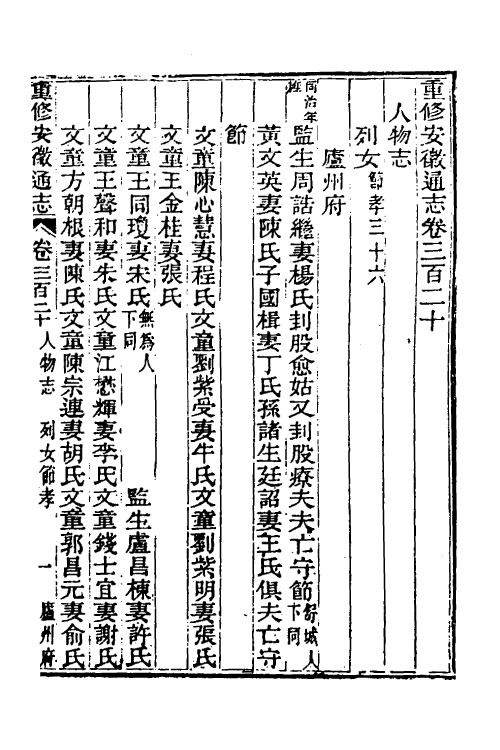 重修安徽通志卷三百二十
人物志
列女節孝三十六
廬州府
同治年
監生周誥繼妻楊氏刲股愈姑又刲股療夫夫亡守節舒城人下同
黃文英妻陳氏子國楫妻丁氏孫諸生廷詔妻王氏俱夫亡守
節
文童陳心慧妻程氏文童劉紫受妻牛氏文童劉紫明妻張氏
文童王金桂妻張氏
文童王同瓊妻宋氏無為人下同 監生盧昌棟妻許氏
文童王聲和妻朱氏文童江懋輝妻李氏文童錢士宜妻謝氏
文童方朝根妻陳氏文童陳宗連妻胡氏文童郭昌元妻俞氏
重修安徽通志 卷三百二十 人物志 列女節孝 一 廬州府